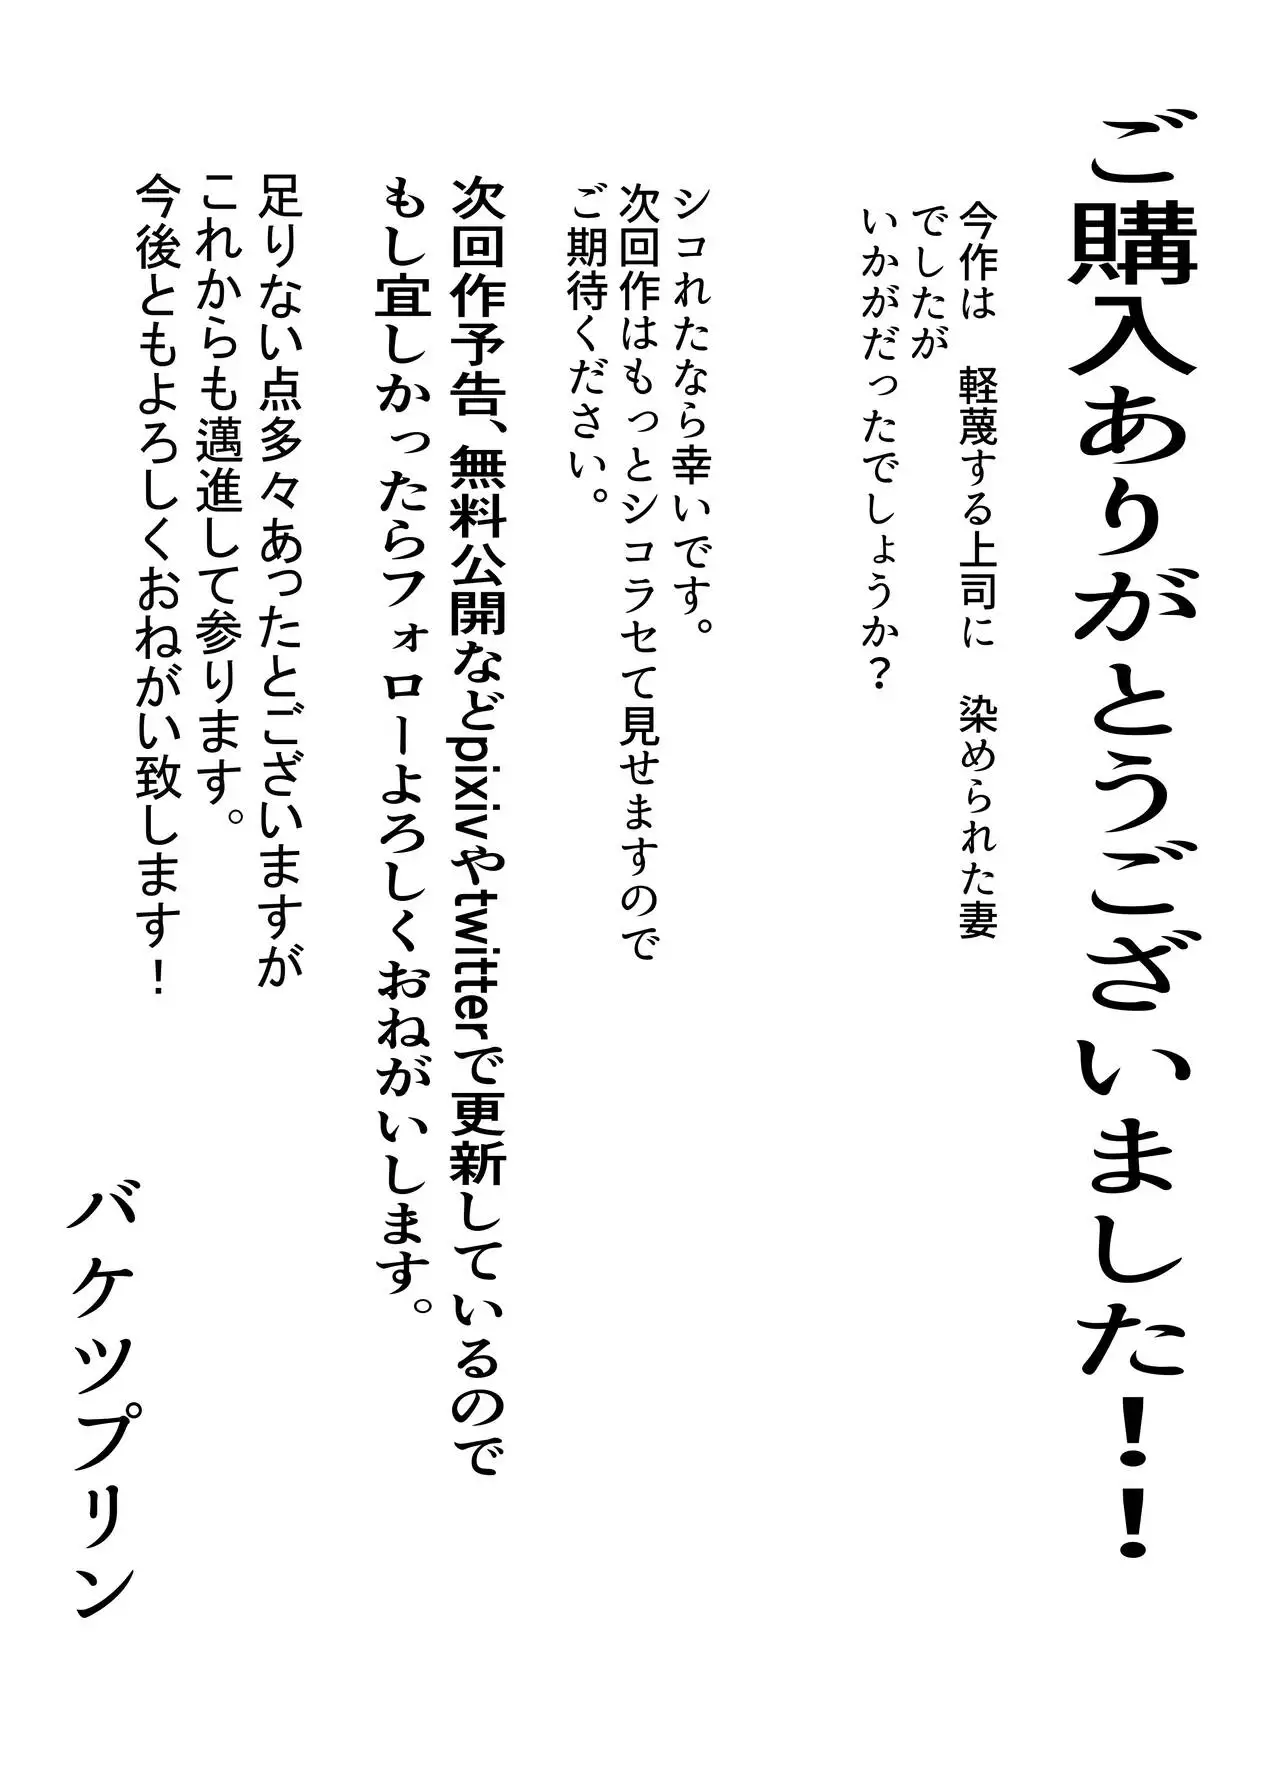 ご購入ありがとうございました！！
今作は　軽蔑する上司に　染められた妻
でしたが
いかがだったでしょうか？
シコれたなら幸いです。
次回作はもっとシコラセて見せますので
ご期待ください。
次回作予告、無料公開などpixivやtwitterで更新しているので
もし宜しかったらフォローよろしくおねがいします。
足りない点多々あったとございますが
これからも邁進して参ります。
今後ともよろしくおねがい致します！
バケツプリン